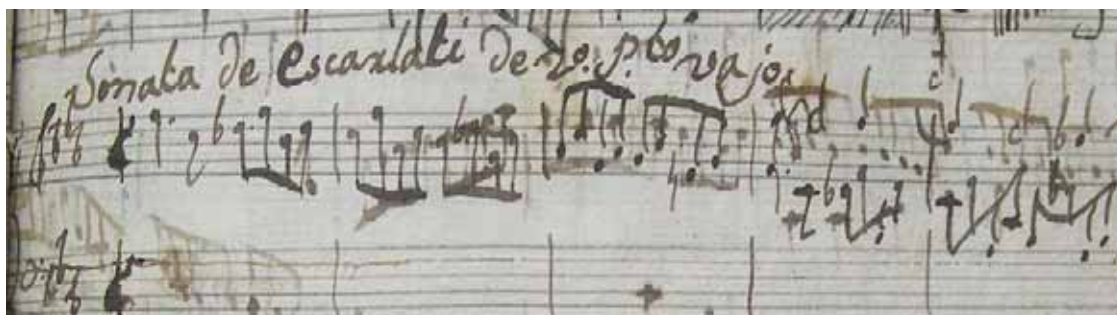 Sonata de escarlati de 2o. p.to vajo.